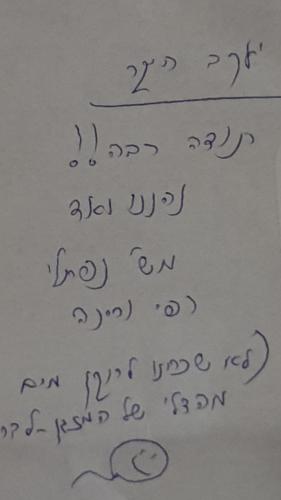 יעקב היקר
תודה רבה!!
נהננו מאד
מש' נפתלי
רפי ורינה
(לא שכחנו לרוקן מים
מהדלי של המזגן -לבר